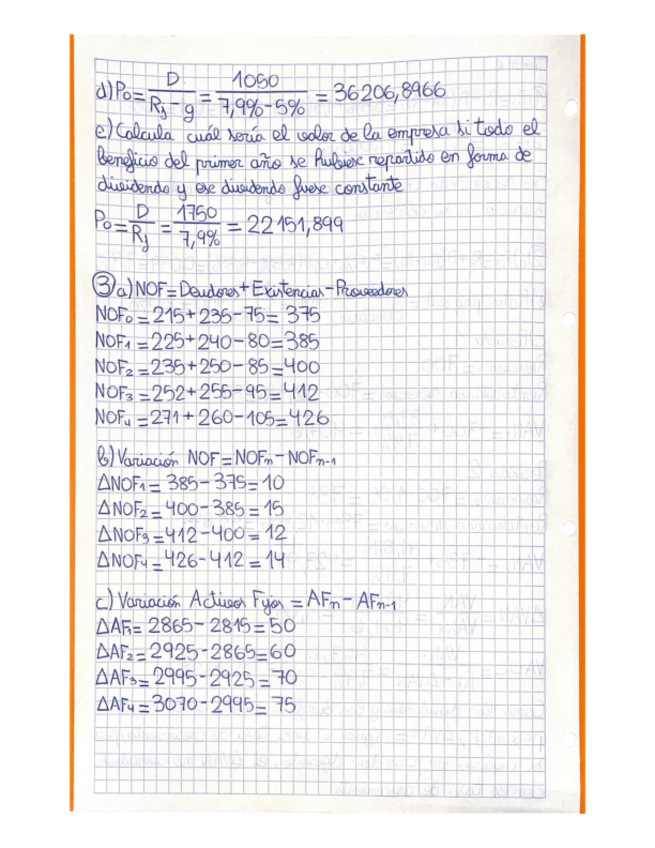 d) P₀ = D / (Rj - g) = 1050 / (7,9% - 5%) = 36206,8966
e) Calcula cuál sería el valor de la empresa si todo el
beneficio del primer año se hubiese repartido en forma de
dividendo y ese dividendo fuese constante
P₀ = D / Rj = 1750 / 7,9% = 22151,899
③ a) NOF = Deudores + Existencias - Proveedores
NOF₀ = 215 + 235 - 75 = 375
NOF₁ = 225 + 240 - 80 = 385
NOF₂ = 235 + 250 - 85 = 400
NOF₃ = 252 + 255 - 95 = 412
NOF₄ = 271 + 260 - 105 = 426
b) Variación NOF = NOFn - NOFn-1
ΔNOF₁ = 385 - 375 = 10
ΔNOF₂ = 400 - 385 = 15
ΔNOF₃ = 412 - 400 = 12
ΔNOF₄ = 426 - 412 = 14
c) Variación Activos Fijos = AFn - AFn-1
ΔAF₁ = 2865 - 2815 = 50
ΔAF₂ = 2925 - 2865 = 60
ΔAF₃ = 2995 - 2925 = 70
ΔAF₄ = 3070 - 2995 = 75